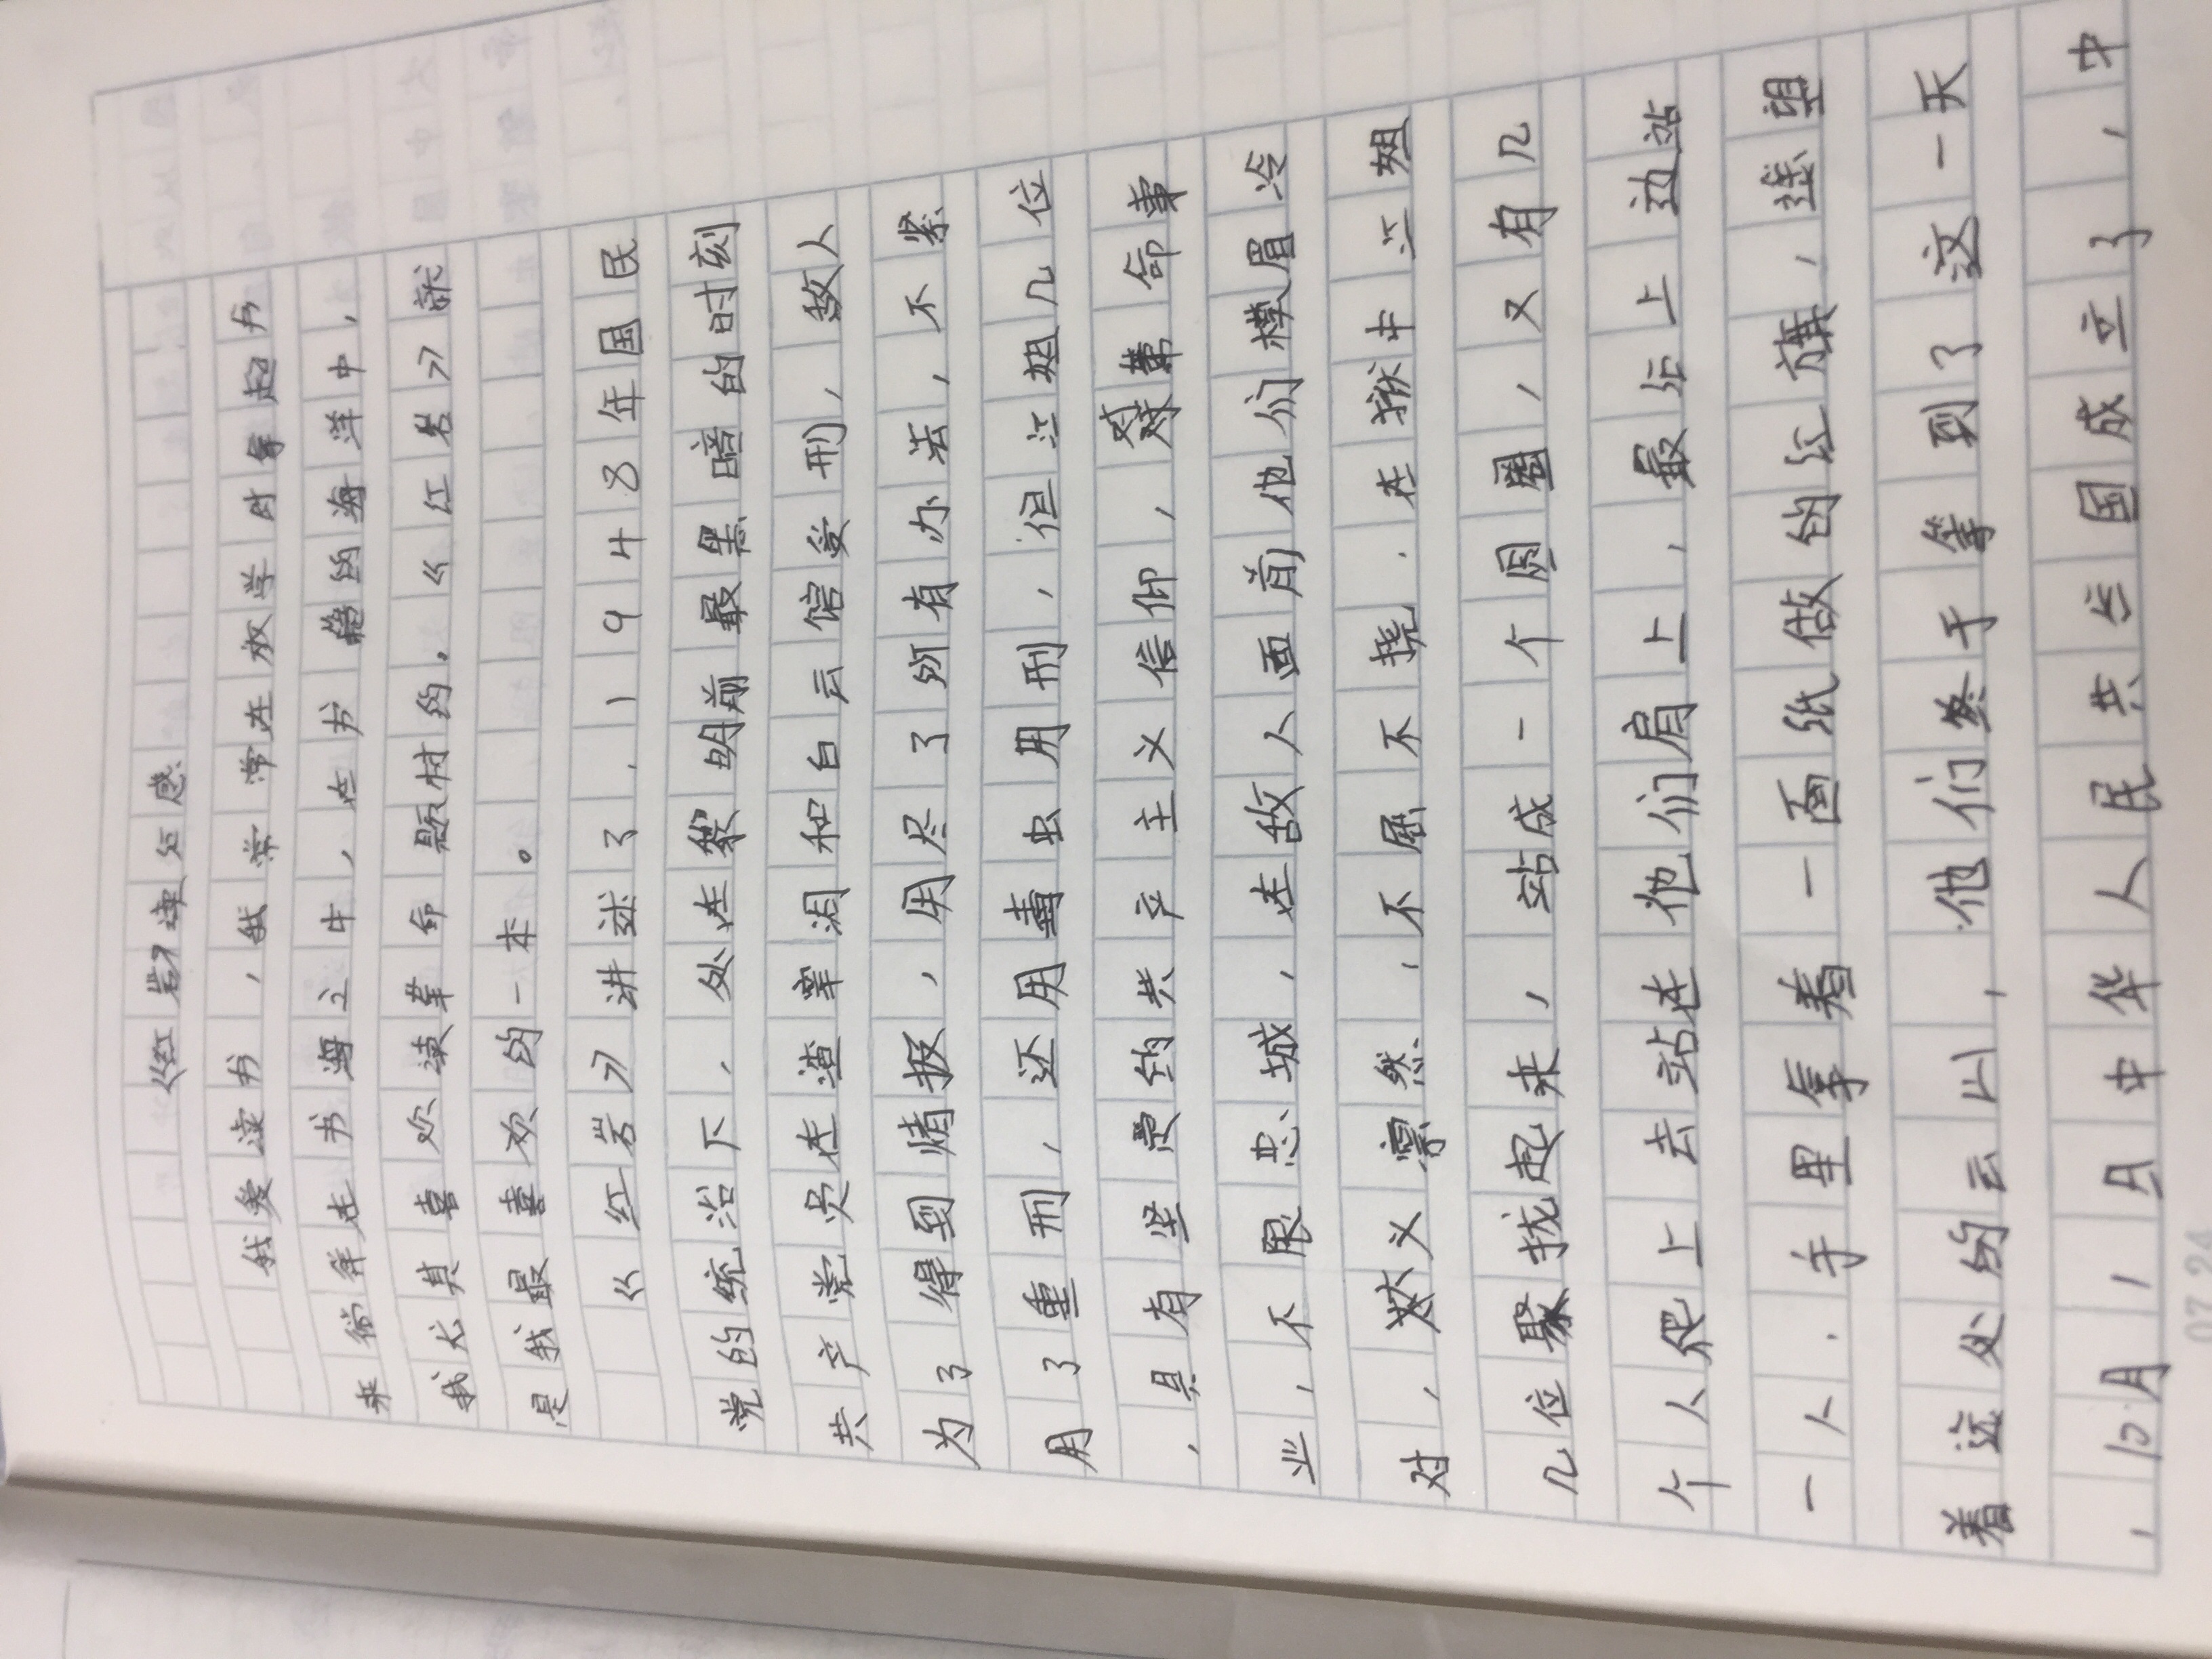 《红岩》读后感
我爱读书，我常常在放学时拿起书
来徜徉在书海之中，在书 的海洋中，
我尤其喜欢读革命题材的，《红岩》就
是我最喜欢的一本。
《红岩》讲述了，1948年国民
党的统治下，处在黎明前最黑暗的时刻
共产党员在渣宰洞和白云馆受刑，敌人
为了得到情报，用尽了所有办法，不紧
用了重刑，还用毒虫用刑，但江姐几位
，具有坚贞的共产主义信仰，对革命事
业，不限忠城，在敌人面前他们横眉冷
对，大义凛然，不屈不挠，在狱中江姐
几位聚拢起来，站成一个圆圈，又有几
个人爬上去站在他们肩上，最后上边站
一人，手里拿着一面纸做的红旗，遥望
着远处的云山，他们终于等到了这一天
，10月1日中华人民共公国成立了，中
07 24